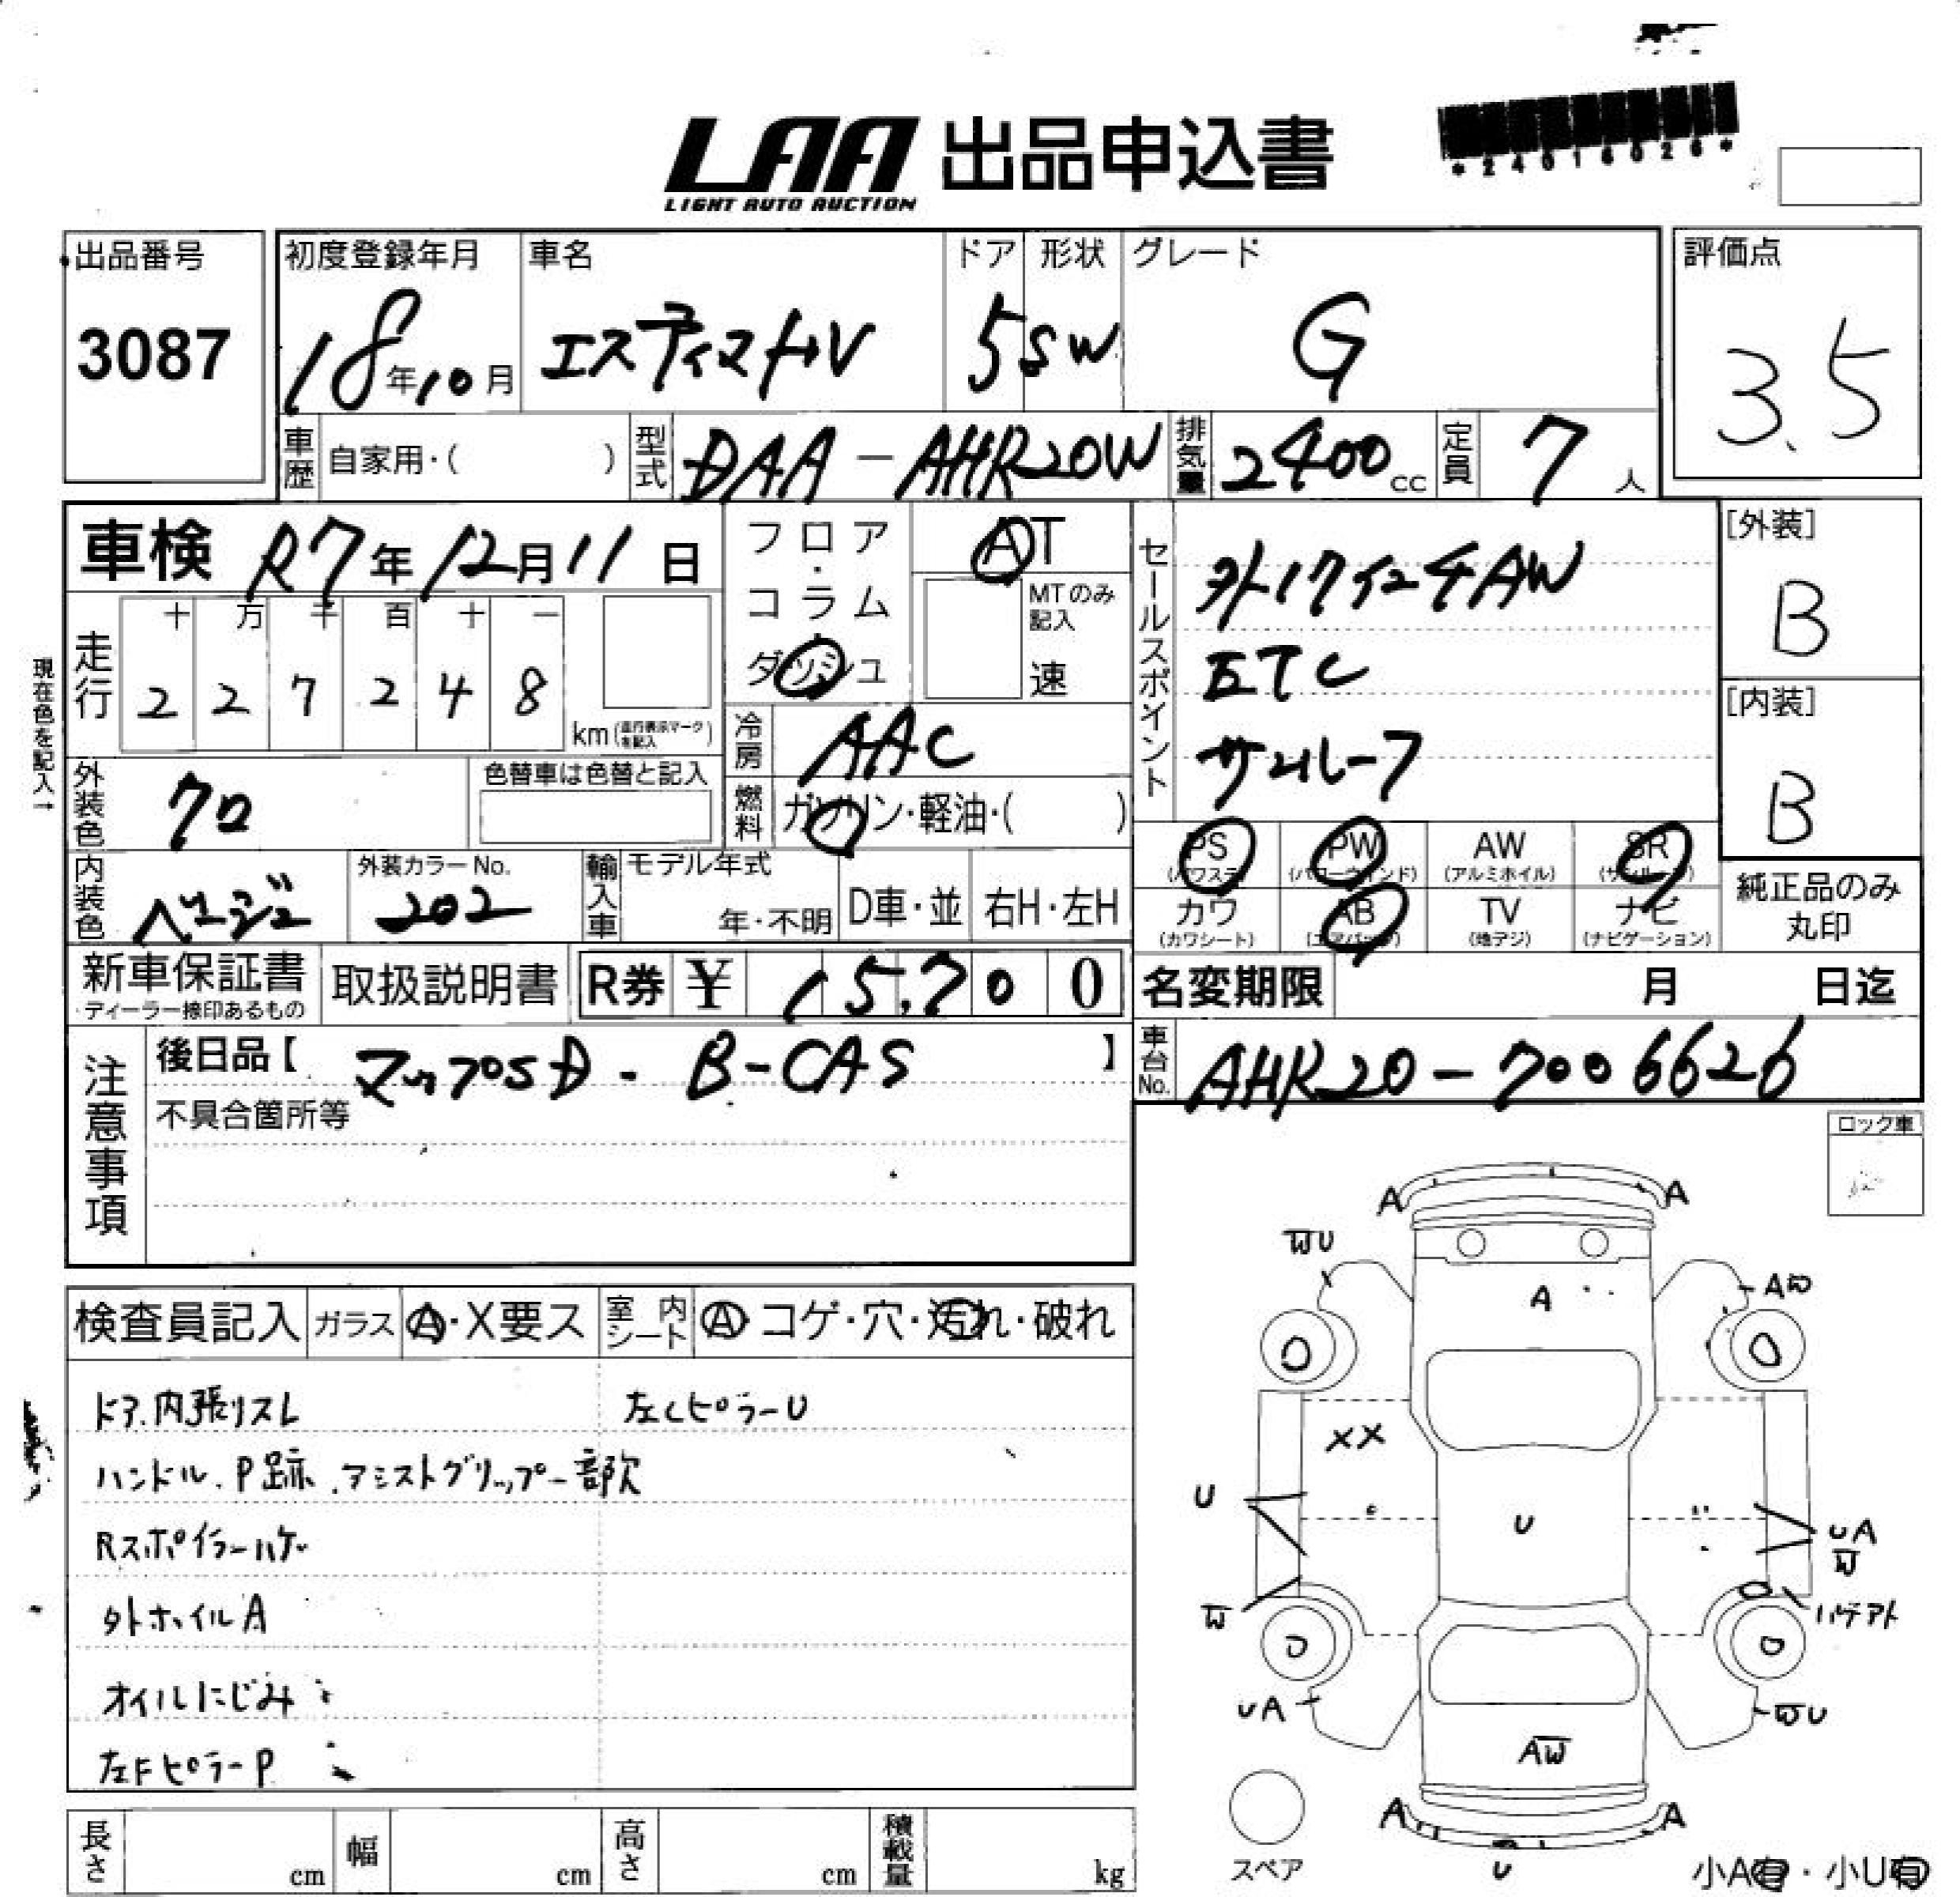 LAA 出品申込書
LIGHT AUTO AUCTION
*24016026*
出品番号
3087
初度登録年月
18年10月
車名
エスティマHV
ドア
5
形状
SW
グレード
G
評価点
3.5
車歴
自家用・( )
型式
DAA-AHR20W
排気量
2400cc
定員
7人
車検 R7年12月11日
フロア・コラム・ダッシュ
AT
MTのみ記入
速
現在色を記入→
走行
十 万 千 百 十 一
2 2 7 2 4 8
km(走行表示マークを記入)
冷房
AAC
燃料
ガソリン・軽油・( )
外装色
クロ
色替車は色替と記入
内装色
ベージュ
外装カラーNo.
202
輸入車
モデル年式
年・不明
D車・並
右H・左H
セールスポイント
外17インチAW
ETC
サンルーフ
PS (パワステ)
PW (パワーウインド)
AW (アルミホイル)
SR (サンルーフ)
カワ (カワシート)
AB (エアバッグ)
TV (地デジ)
ナビ (ナビゲーション)
[外装]
B
[内装]
B
純正品のみ丸印
新車保証書
・ディーラー捺印あるもの
取扱説明書
R券 ¥ 15,700
名変期限 月 日迄
車台No.
AHR20-7006626
注意事項
後日品【 マップSD・B-CAS 】
不具合箇所等
ロック車
検査員記入
ガラス
A・X要ス
室内シート
A・コゲ・穴・汚れ・破れ
ドア内張リスレ
左CピラーU
ハンドル、P跡、アシストグリップ一部欠
Rスポイラーハゲ
外ホイルA
オイルにじみ
左FピラーP
A A
WU
A
AW
XX
U
U
UA
W
W
ハゲアト
UA
WU
AW
A A
U
スペア
小A有・小U有
長さ cm
幅 cm
高さ cm
積載量 kg